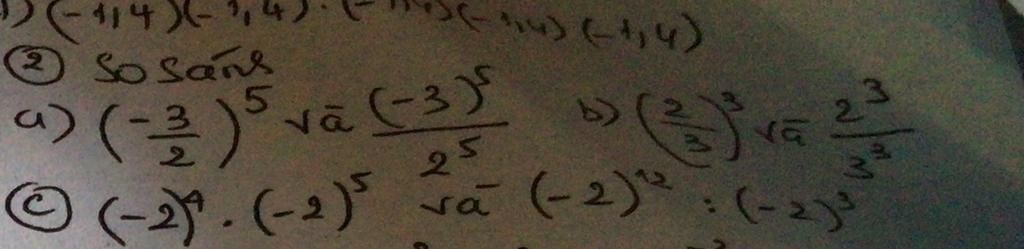 (-1,4)(-1,4).(-1,4)(-1,4)(-1,4)
② so sánh
a) (-3/2)^5 và (-3)^5/2^5 b) (2/3)^3 và 2^3/3^3
c) (-2)^4 . (-2)^5 và (-2)^12 : (-2)^3